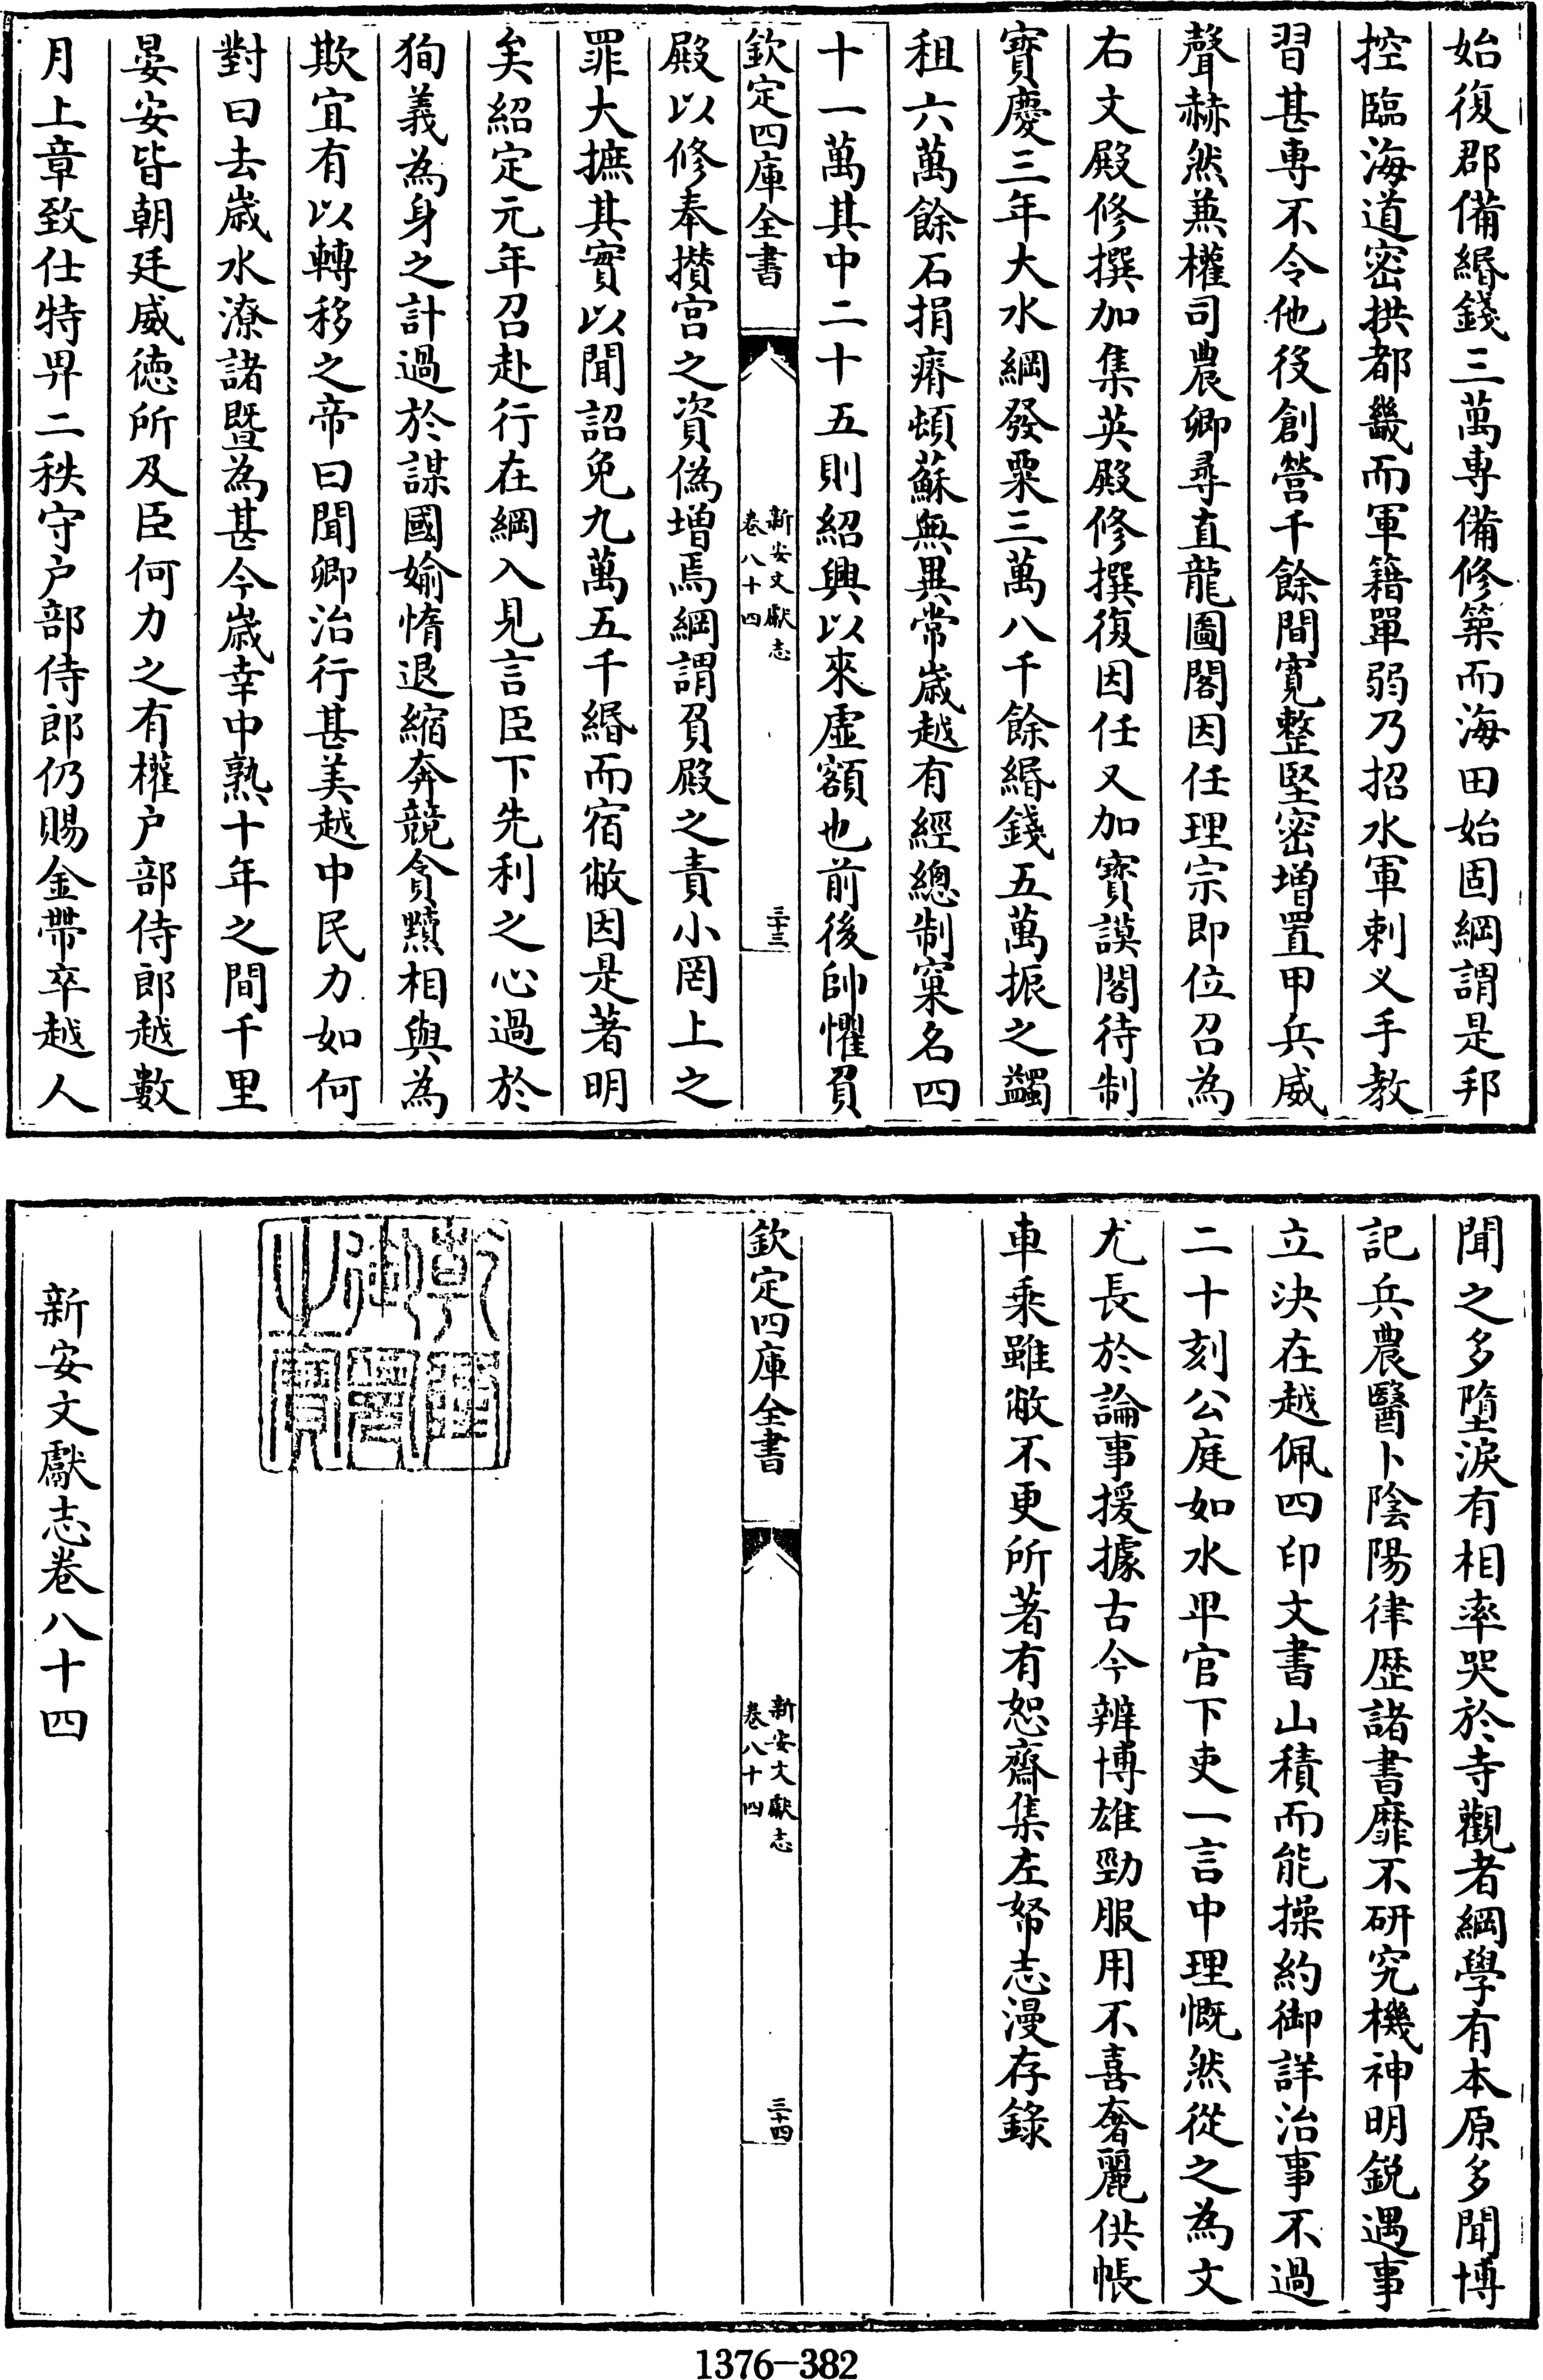 始復郡備緡錢三萬専備修築而海田始固綱謂是邦
控臨海道密拱都畿而軍籍單弱乃招水軍刺义手教
習甚専不令他役創營千餘間寛整堅密增置甲兵威
聲赫然兼權司農卿尋直龍圖閣因任理宗即位召為
右文殿修撰加集英殿修撰復因任又加寳謨閣待制
寳慶三年大水綱發粟三萬八千餘緡錢五萬振之蠲
租六萬餘石捐瘠頓蘇無異常歳越有經總制窠名四
十一萬其中二十五則紹興以來虛額也前後帥懼負
欽定四庫全書
新安文獻志
卷八十四
三十三
殿以修奉攅宫之資偽增焉綱謂負殿之責小罔上之
罪大摭其實以聞詔免九萬五千緡而宿敝因是著明
矣紹定元年召赴行在綱入見言臣下先利之心過於
狥義為身之計過於謀國媮惰退縮奔競貪黷相與為
欺宜有以轉移之帝曰聞卿治行甚美越中民力如何
對曰去歳水潦諸暨為甚今歳幸中熟十年之間千里
晏安皆朝廷威徳所及臣何力之有權户部侍郎越數
月上章致仕特畀二秩守户部侍郎仍賜金帶卒越人
聞之多墮淚有相率哭於寺觀者綱學有本原多聞博
記兵農醫卜陰陽律歴諸書靡不研究機神明鋭遇事
立決在越佩四印文書山積而能操約御詳治事不過
二十刻公庭如水卑官下吏一言中理慨然從之為文
尤長於論事援據古今辨博雄勁服用不喜奢麗供帳
車乘雖敝不更所著有恕齋集左帑志漫存錄
欽定四庫全書
新安文獻志
卷八十四
三十四
乾隆御覽之寶
新安文獻志卷八十四
1376-382